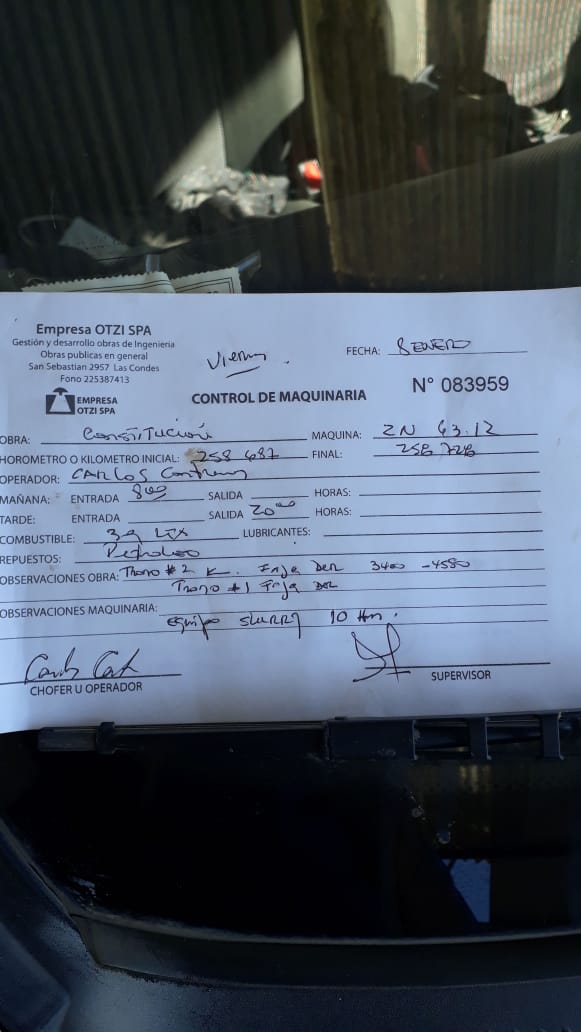 Empresa OTZI SPA
Gestión y desarrollo obras de Ingenieria
Obras publicas en general
San Sebastian 2957 Las Condes
Fono 225387413
EMPRESA
OTZI SPA
Viernes.
FECHA: 8 ENERO
CONTROL DE MAQUINARIA
N° 083959
OBRA: Constitución MAQUINA: ZN 43.12
HOROMETRO O KILOMETRO INICIAL: 258 687 FINAL: 258 728
OPERADOR: CARLOS
MAÑANA: ENTRADA 8 00 SALIDA HORAS:
TARDE: ENTRADA SALIDA 20 00 HORAS:
COMBUSTIBLE: 39 LTX LUBRICANTES:
REPUESTOS: Petroleo
OBSERVACIONES OBRA: Tramo #2 K. Faja DER 3400 - 4580
Tramo #1 Faja DER
OBSERVACIONES MAQUINARIA:
equipo slurry 10 Hrs.
CHOFER U OPERADOR
SUPERVISOR